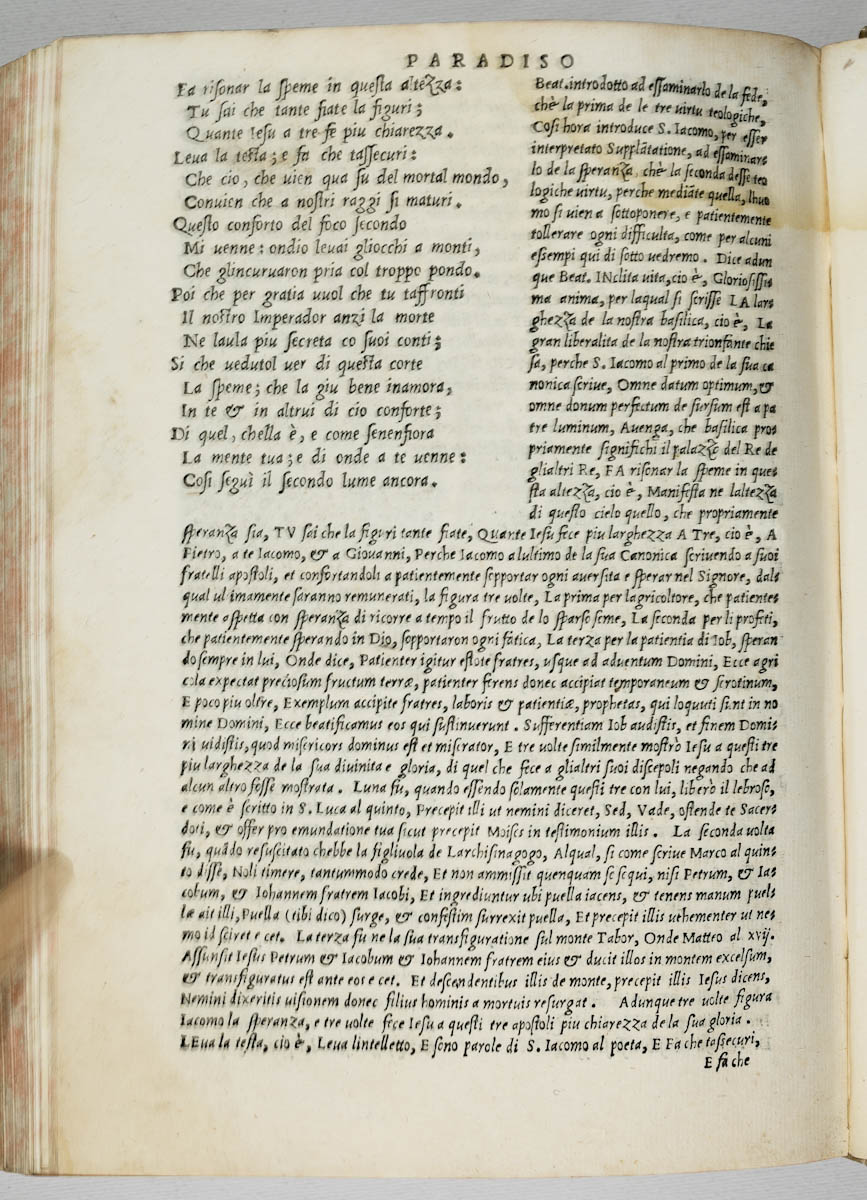 PARADISO
Fa risonar la speme in questa altezza:
Tu sai che tante fiate la figuri;
Quante Iesu a tre fe piu chiarezza.
Leua la testa; e fa che tassecuri:
Che cio, che uien qua su del mortal mondo,
Conuien che a nostri raggi si maturi.
Questo conforto del foco secondo
Mi uenne: ondio leuai gliocchi a monti,
Che glincuruaron pria col troppo pondo.
Poi che per gratia uuol che tu taffronti
Il nostro Imperador anzi la morte
Ne laula piu secreta co suoi conti;
Si che uedutol uer di questa corte
La speme; che la giu bene inamora,
In te & in altrui di cio conforte;
Di quel, chella è, e come senenfiora
La mente tua; e di onde a te uenne:
Cosi seguì il secondo lume ancora.
Beat. introdotto ad essaminarlo de la fede,
chè la prima de le tre uirtu teologiche,
Cosi hora introduce S. Iacomo, per esser
interpretato Supplãtatione, ad essaminar
lo de la speranza, chè la seconda desse teo
logiche uirtu, perche mediãte quella, lhuo
mo si uien a sottoponere, e patientemente
tollerare ogni difficulta, come per alcuni
essempi qui di sotto uedremo. Dice adun
que Beat. INclita uita, cio è, Gloriosissi
ma anima, per laqual si scrisse LA lar
ghezza de la nostra basilica, cio è, La
gran liberalita de la nostra trionfante chie
sa, perche S. Iacomo al primo de la sua ca
nonica scriue, Omne datum optimum, &
omne donum perfectum de sursum est a pa
tre luminum, Auenga, che basilica pro
priamente significhi il palazzo del Re de
glialtri Re, FA risonar la speme in que
sta altezza, cio è, Manifesta ne laltezza
di questo cielo quello, che propriamente
speranza sia, TV sai che la figuri tante fiate, Quante Iesu fece piu larghezza A Tre, cio è, A
Pietro, a te Iacomo, & a Giouanni, Perche Iacomo alultimo de la sua Canonica scriuendo a suoi
fratelli apostoli, et confortandoli a patientemente sopportar ogni auersita e sperar nel Signore, dal
qual ultimamente saranno remunerati, la figura tre uolte, La prima per lagricoltore, che patiente
mente aspetta con speranza di ricorre a tempo il frutto de lo sparso seme, La seconda per li profeti,
che patientemente sperando in Dio, sopportaron ogni fatica, La terza per la patientia di Iob, speran
do sempre in lui, Onde dice, Patienter igitur estote fratres, usque ad aduentum Domini, Ecce agri
cola expectat preciosum fructum terræ, patienter ferens donec accipiat temporaneum & serotinum,
E poco piu oltre, Exemplum accipite fratres, laboris & patientiæ, prophetas, qui loquuti sunt in no
mine Domini, Ecce beatificamus eos qui sustinuerunt. Sufferentiam Iob audistis, et finem Domi
ni uidistis, quod misericors dominus est et miserator, E tre uolte similmente mostrò Iesu a questi tre
piu larghezza de la sua diuinita e gloria, di quel che fece a glialtri suoi discepoli negando che ad
alcun altro fosse mostrata. Luna fu, quando essendo solamente questi tre con lui, liberò il lebroso,
e come è scritto in S. Luca al quinto, Precepit illi ut nemini diceret, Sed, Vade, ostende te Sacer
doti, & offer pro emundatione tua sicut precepit Moises in testimonium illis. La seconda uolta
fu, quãdo resuscitato chebbe la figliuola de Larchisinagogo, Alqual, si come scriue Marco al quin
to disse, Noli timere, tantummodo crede, Et non ammissit quenquam se sequi, nisi Petrum, & Ia
cobum, & Iohannem fratrem Iacobi, Et ingrediuntur ubi puella iacens, & tenens manum puel
læ ait illi, Puella (tibi dico) surge, & confestim surrexit puella, Et precepit illis uehementer ut ne
mo id sciret e cet. La terza fu ne la sua transfiguratione sul monte Tabor, Onde Matteo al xvij.
Assunsit Iesus Petrum & Iacobum & Iohannem fratrem eius & ducit illos in montem excelsum,
& transfiguratus est ante eos e cet. Et descendentibus illis de monte, precepit illis Iesus dicens,
Nemini dixeritis uisionem donec filius hominis a mortuis resurgat. Adunque tre uolte figura
Iacomo la speranza, e tre uolte fece Iesu a questi tre apostoli piu chiarezza de la sua gloria.
LEua la testa, cio è, Leua lintelletto, E sono parole di S. Iacomo al poeta, E Fa che tassecuri,
E fa che